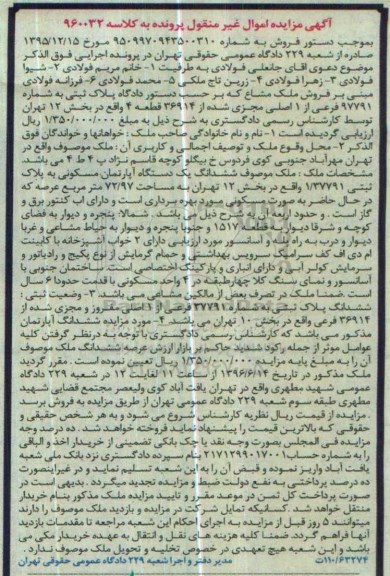 آگهی مزایده اموال غیر منقول پرونده به کلاسه ۹۶۰۰۳۲
بموجب دستور فروش به شماره ۹۵۰۹۹۷۰۹۴۳۵۰۰۳۱۰ مورخ ۱۳۹۵/۱۲/۱۵
صادره از شعبه ۲۲۹ دادگاه عمومی حقوقی تهران در پرونده اجرایی فوق الذکر
موضوع دعوی آقای جانعلی فولادی به طرفیت ۱- خانم مریم فولادی ۲- شیوا
فولادی ۳- زهرا فولادی ۴- زرین تاج ملکی ۵- محمد فولادی ۶- فرزانه فولادی
مبنی بر فروش ملک مشاع که بر حسب دستور دادگاه پلاک ثبتی به شماره
۹۷۷۹۱ فرعی از ۱ اصلی مجزی شده از ۳۶۹۱۴ قطعه ۴ واقع در بخش ۱۲ تهران
توسط کارشناس رسمی دادگستری به شرح ذیل به مبلغ ۱/۳۵۰/۰۰۰/۰۰۰ ریال
ارزیابی گردیده است ۱- نام و نام خانوادگی صاحب ملک : خواهانها و خواندگان فوق
الذکر ۲- محل وقوع ملک و توصیف اجمالی و کاربری آن : ملک موصوف واقع در
تهران مهرآباد جنوبی کوی فردوس خ بیگلو کوچه قاسم نژاد پ ۴ ط ۴ می باشد
مشخصات ملک : ملک موصوف ششدانگ یک دستگاه آپارتمان مسکونی به پلاک
ثبتی ۱/۳۷۷۹۱ واقع در بخش ۱۲ تهران به مساحت ۷۲/۹۷ متر مربع عرصه که
در حال حاضر به صورت مسکونی مورد بهره برداری است و دارای اب کنتور برق و
گاز است . و حدود اربعه آن به شرح ذیل می باشد . شمالا: پنجره و دیوار به فضای
کوچه و شرقا دیوار به قطعه ۱۵۱۷ و جنوبا پنجره و دیوار به حیاط مشاعی و غربا
دیوار و درب به راه پله و آسانسور مورد ارزیابی دارای ۲ خواب آشپزخانه با کابینت
ام دی اف کف سرامیک سرویس بهداشتی و حمام گرمایش از نوع پکیج و رادیاتور و
سرمایش کولر آبی و دارای انباری و پارکینگ اختصاصی است ساختمان جنوبی با
آسانسور و نمای سنگ کلا چهارطبقه در ۴ واحد مسکونی با قدمت حدودا ۶ سال
است ضمنا ملک در تصرف بعض از مالکین مشاعی می باشد ۳- وضعیت ثبتی :
ششدانگ پلاک ثبتی به شماره ۳۷۷۹۱ فرعی از ۱ اصلی مفروز و مجزی شده از
۳۶۹۱۴ فرعی واقع در بخش ۱۰ تهران می باشد ۴- مورد مزایده ششدانگ آپارتمان
مذکور می باشد که کارشناس رسمی دادگستری با توجه به در نظر گرفتن کلیه
عوامل موثر از جمله رکود شدید حاکم بر بازار ارزش عرصه ششدانگ ملک موصوف
آن را به مبلغ پایه مزایده ۱/۳۵۰/۰۰۰/۰۰۰ ریال تعیین نموده است . مقرر گردید
ملک مذکور در تاریخ ۱۳۹۶/۶/۱۴ از ساعت ۱۱ لغایت ۱۲ در شعبه ۲۲۹ دادگاه
عمومی شهید مطهری واقع در تهران یافت آباد کوی ولیعصر مجتمع قضایی شهید
مطهری طبقه سوم شعبه ۲۲۹ دادگاه عمومی تهران از طریق مزایده به فروش برسد
. مزایده از قیمت ریال نظریه کارشناس شروع می شود و به هر شخص حقیقی و
حقوقی که بالاترین قیمت را پیشنهاد نماید فروخته خواهد شد . ده درصد وجه
مزایده فی المجلس بصورت وجه نقد یا چک بانکی تضمینی از خریدار اخذ و الباقی
را به شماره حساب ۲۱۷۱۲۹۹۰۱۷۰۰۱ بنام سپرده دادگستری نزد بانک ملی شعبه
یافت آباد واریز نموده و قبض آن را به این شعبه تسلیم نماید و در غیراینصورت
ده درصد پرداختی به نفع دولت ضبط و مزایده تجدید میگردد . بدیهی است در
صورت پرداخت کل ثمن در موعد مقرر و تایید مزایده ملک مذکور بنام خریدار
منتقل خواهد شد . کسانیکه تمایل شرکت در مزایده و بازدید ملک موصوف را دارند
میتوانند ۵ روز قبل از مزایده به اجرای احکام این شعبه مراجعه تا مقدمات بازدید
آنها فراهم گردد. ضمنا کلیه هزینه های نقل و انتقال به عهده خریدار مکی می
باشد و این شعبه هیچ تعهدی در خصوص تخلیه و تحویل ملک موصوف ندارد .
۱۱۰/۶۳۲۷۴ت مدیر دفتر و اجرا شعبه ۲۲۹ دادگاه عمومی حقوقی تهران